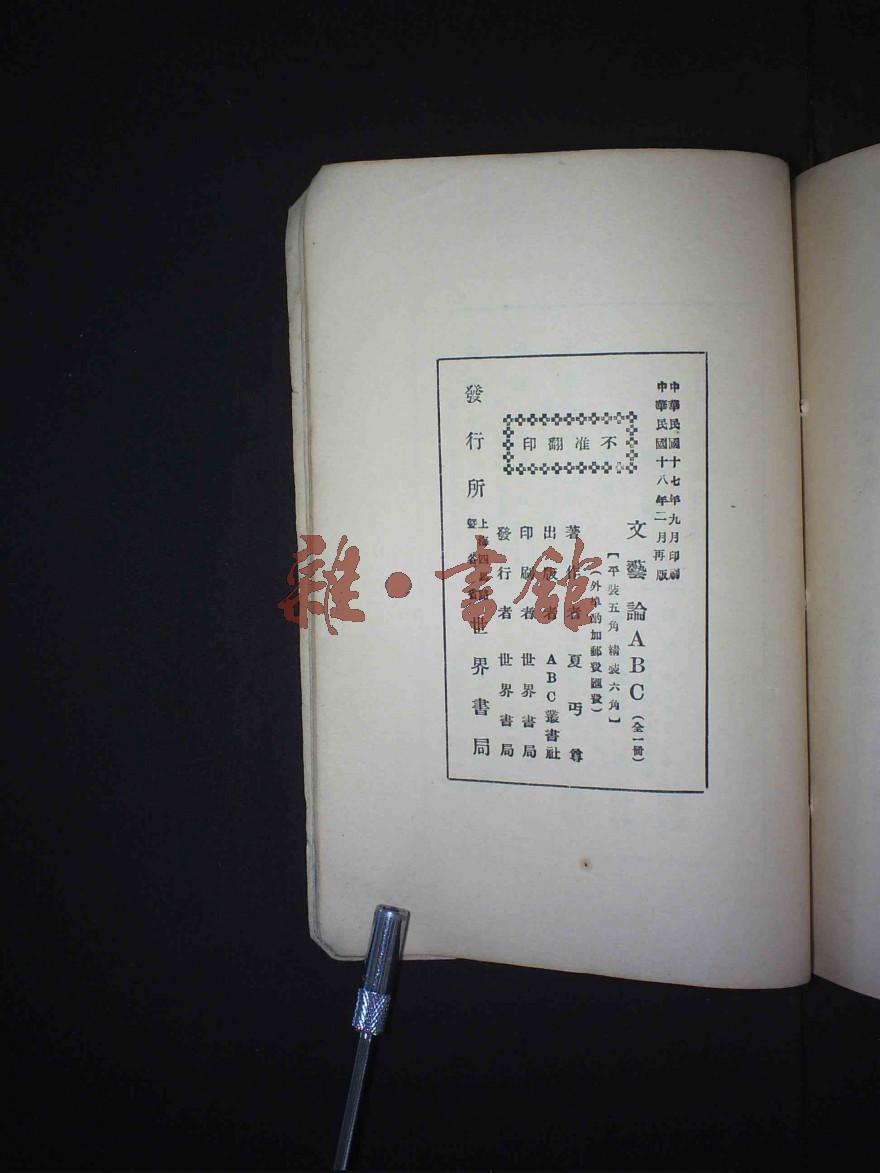 中華民國十七年九月印刷
中華民國十八年二月再版
文藝論ABC（全一冊）
【平裝五角 精裝六角】
（外埠酌加郵費匯費）
著作者 夏丏尊
出版者 ABC叢書社
印刷者 世界書局
發行者 世界書局
不准翻印
發行所 上海四馬路暨各省 世界書局
雜·書館